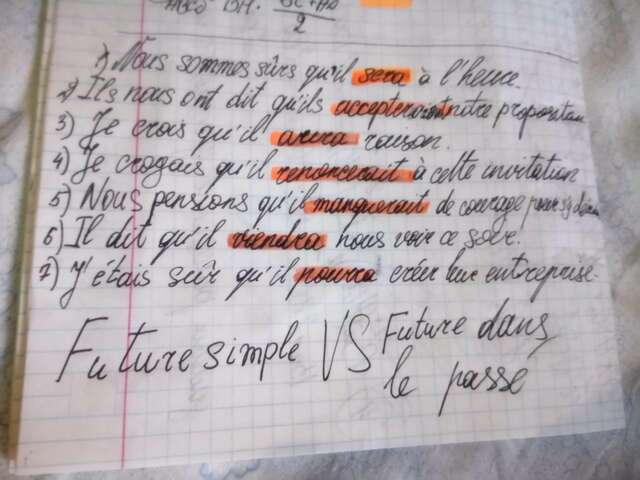 1) Nous sommes sûrs qu'il sera à l'heure.
2) Ils nous ont dit qu'ils accepteraient nitre proposition
3) Je crois qu'il aura raison.
4) Je croyais qu'il renoncerait à cette invitation
5) Nous pensions qu'il manquerait de courage pour s'y
6) Il dit qu'il viendra nous voir ce soir.
7) J'étais sûr qu'il pourra créer leur entreprise.
Future simple VS Future dans
le passé